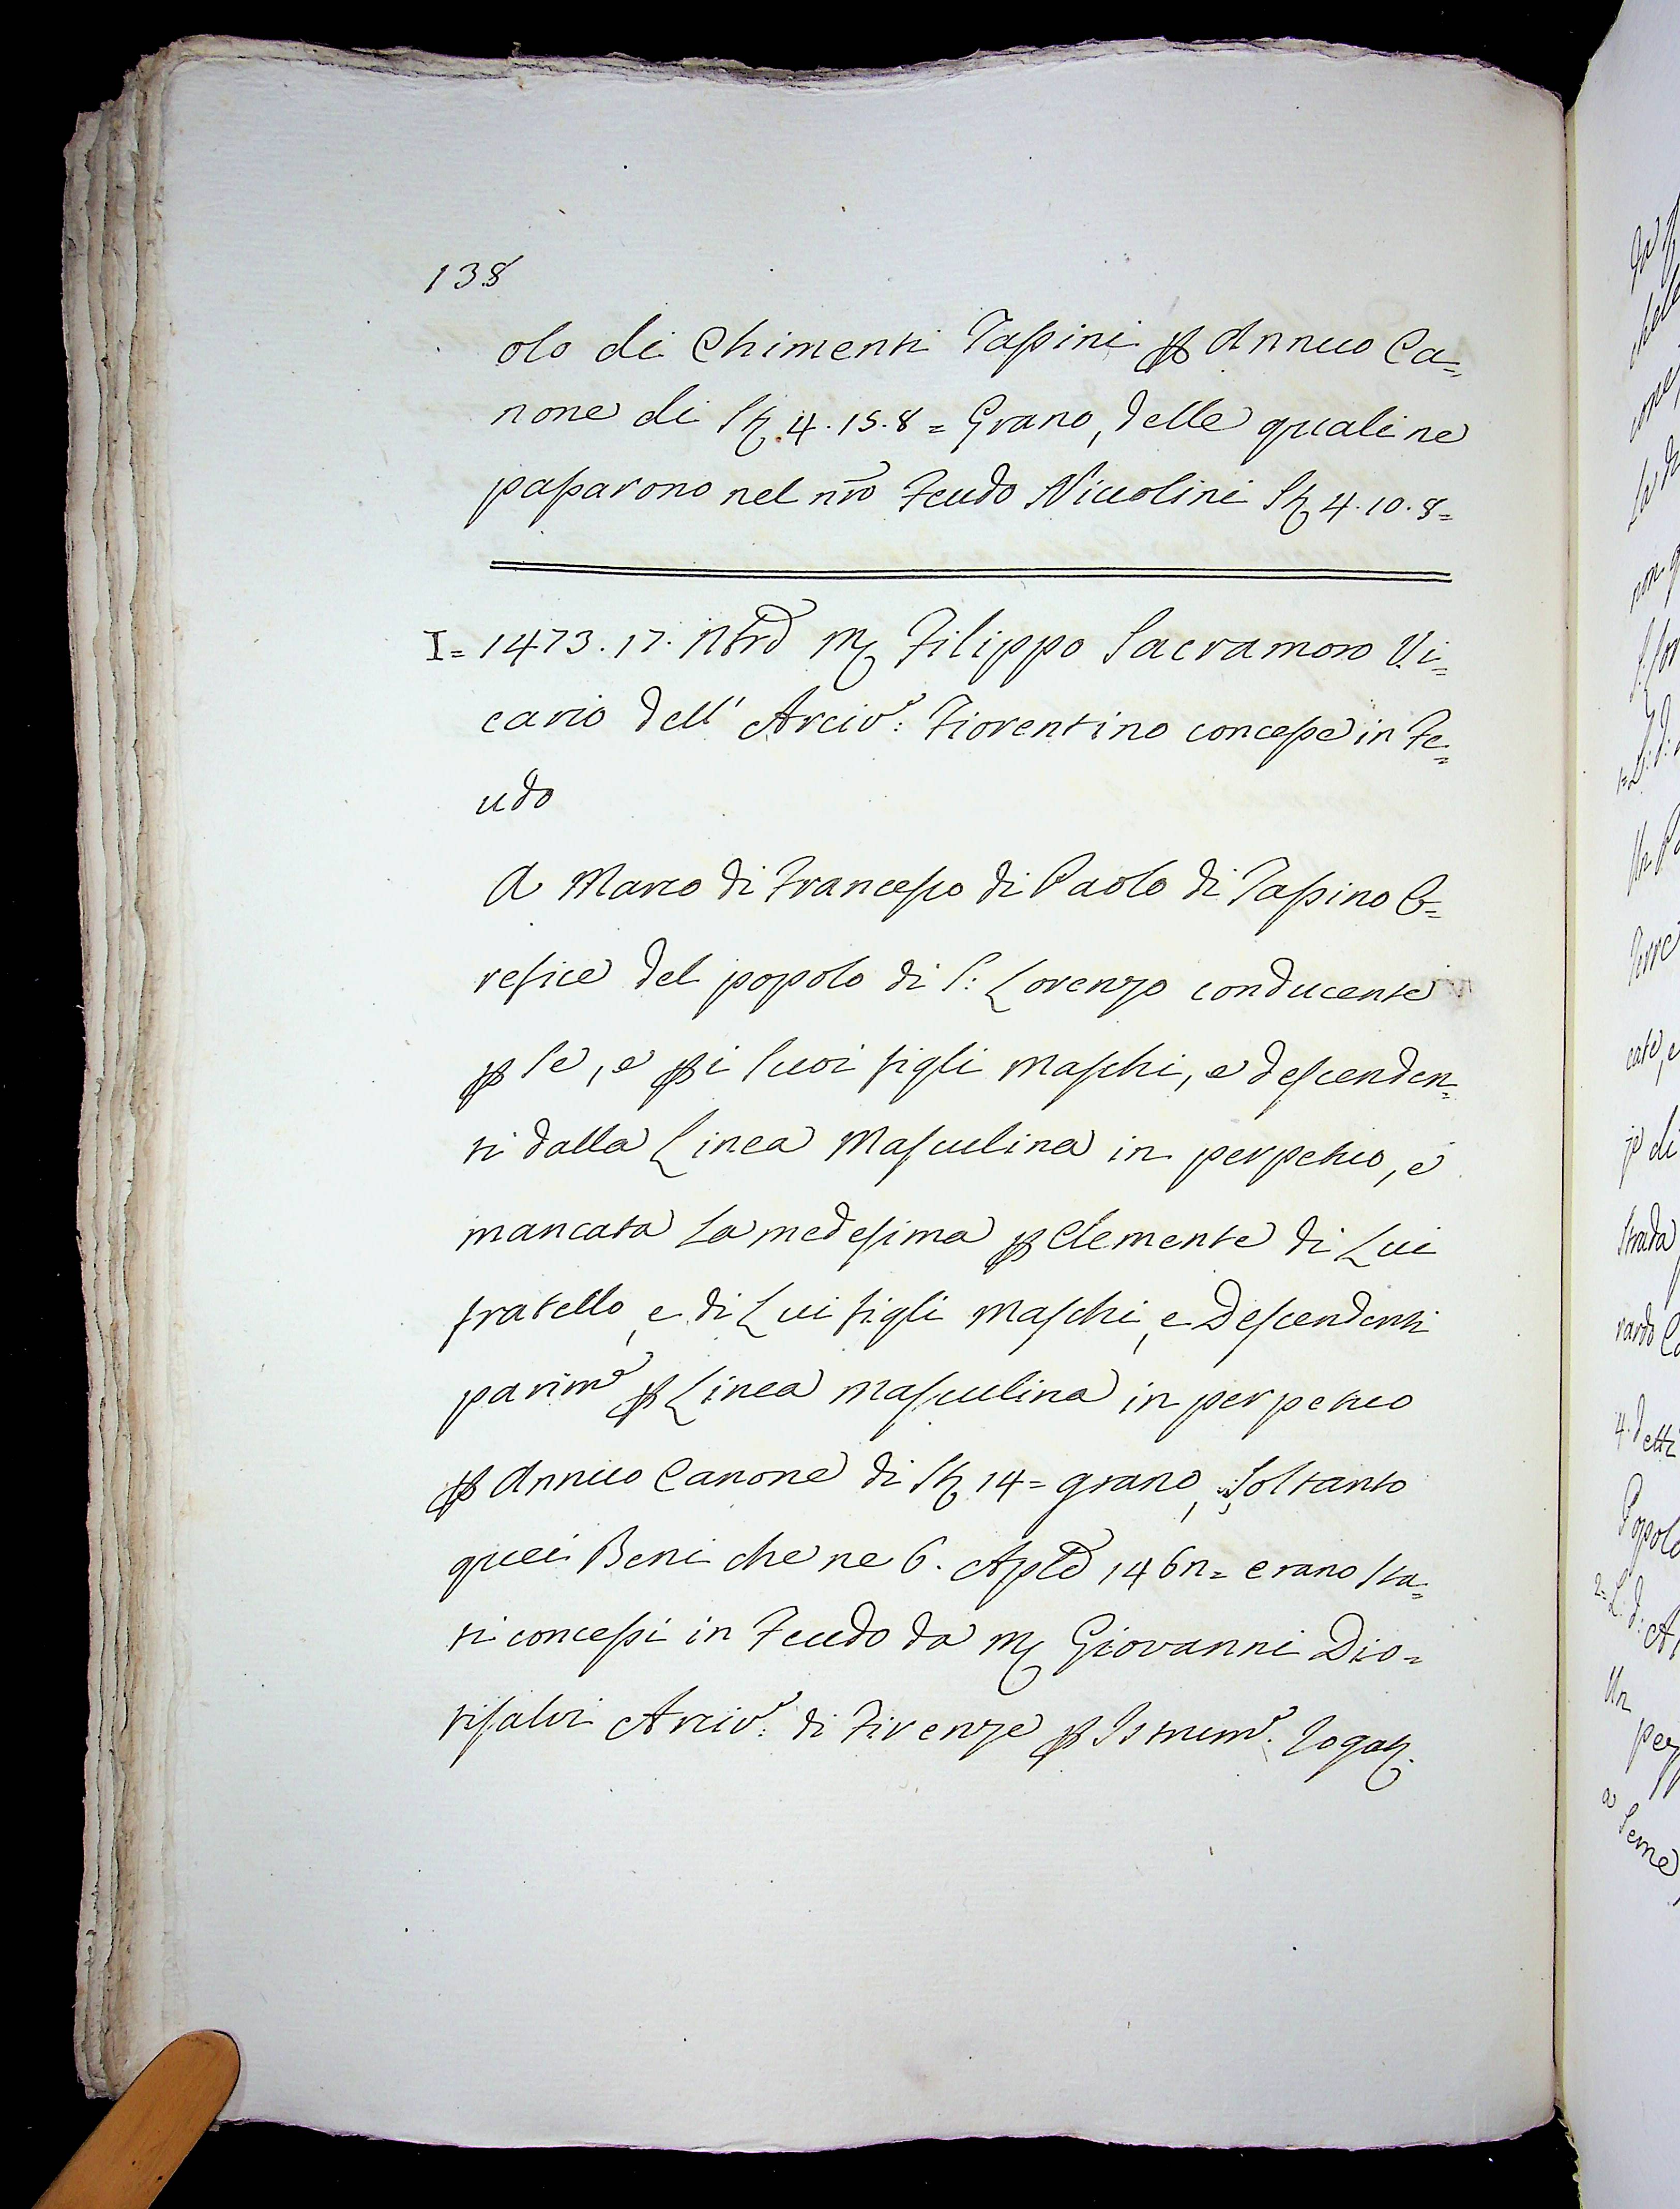 138
olo di Chimenti Tassini ꝑ Annuo Ca=
none di St. 4.15.8= Grano, delle quali ne
passarono nel nro Feudo Niccolini St. 4.10.8=
I= 1473.17. Nbre M. Filippo Sacramoro Vi=
cario dell' Arciv.: Fiorentino concesse in Fe=
udo
A Marco di Francesco di Paolo di Tassino O=
refice del popolo di S: Lorenzo conducente
ꝑ se, e ꝑ i suoi figli maschi, e descenden=
ti dalla Linea Masculina in perpetuo, e
mancata la medesima ꝑ Clemente di Lui
fratello, e di Lui figli maschi, e Descendenti
parim.e ꝑ Linea masculina in perpetuo
ꝑ Annuo Canone di St. 14= grano, Soltanto
quei Beni che ne 6. Aple 146n= erano sta=
ti concessi in Feudo da M. Giovanni Dio=
tisalvi Arciv.: di Firenze ꝑ Istrum.